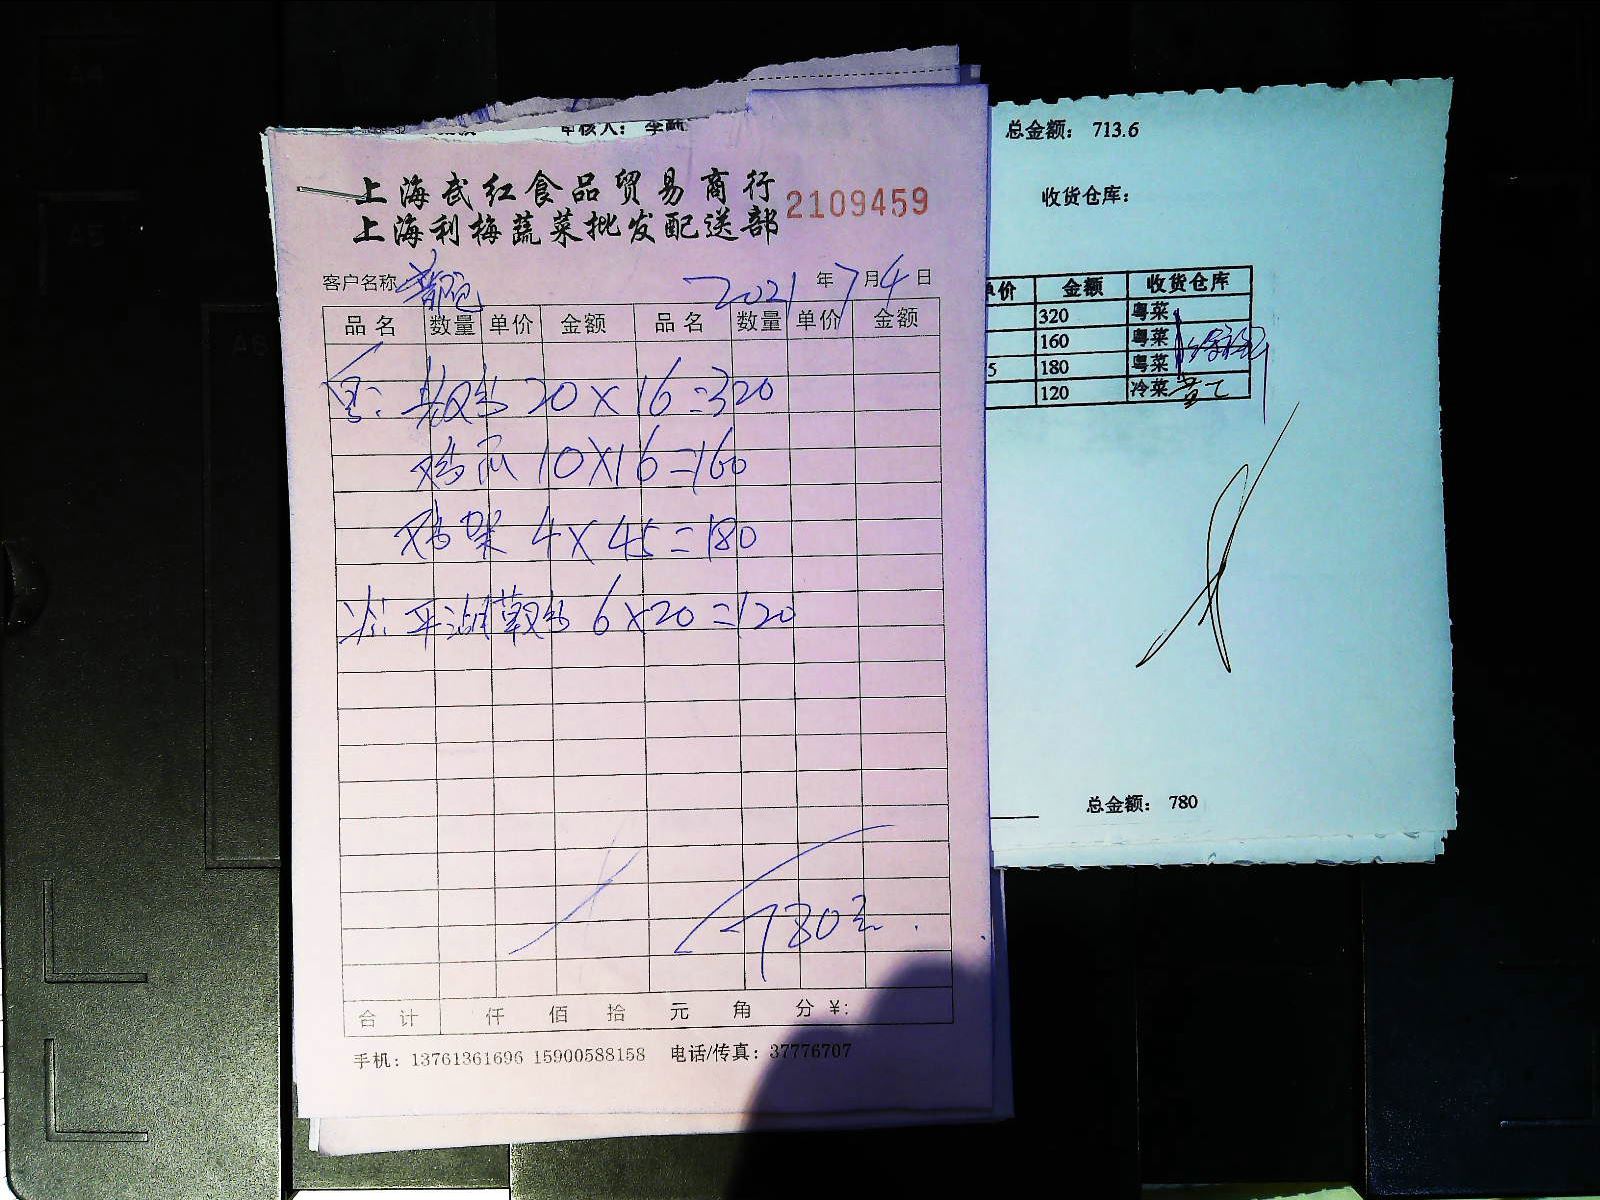 审核人：
上海武红食品贸易商行
上海利梅蔬菜批发配送部
2109459
客户名称 2021 年 7 月 4 日
品名 数量 单价 金额 品名 数量 单价 金额
20 X 16 = 320
鸡爪 10 X 16 = 160
鸡架 4 X 45 = 180
冷: 平湖 6 X 20 = 120
780元.
合计 仟 佰 拾 元 角 分 ¥:
手机：13761361696 15900588158 电话/传真：37776707
总金额： 713.6
收货仓库：
单价 金额 收货仓库
320 粤菜
160 粤菜
5 180 粤菜
120 冷菜
总金额： 780